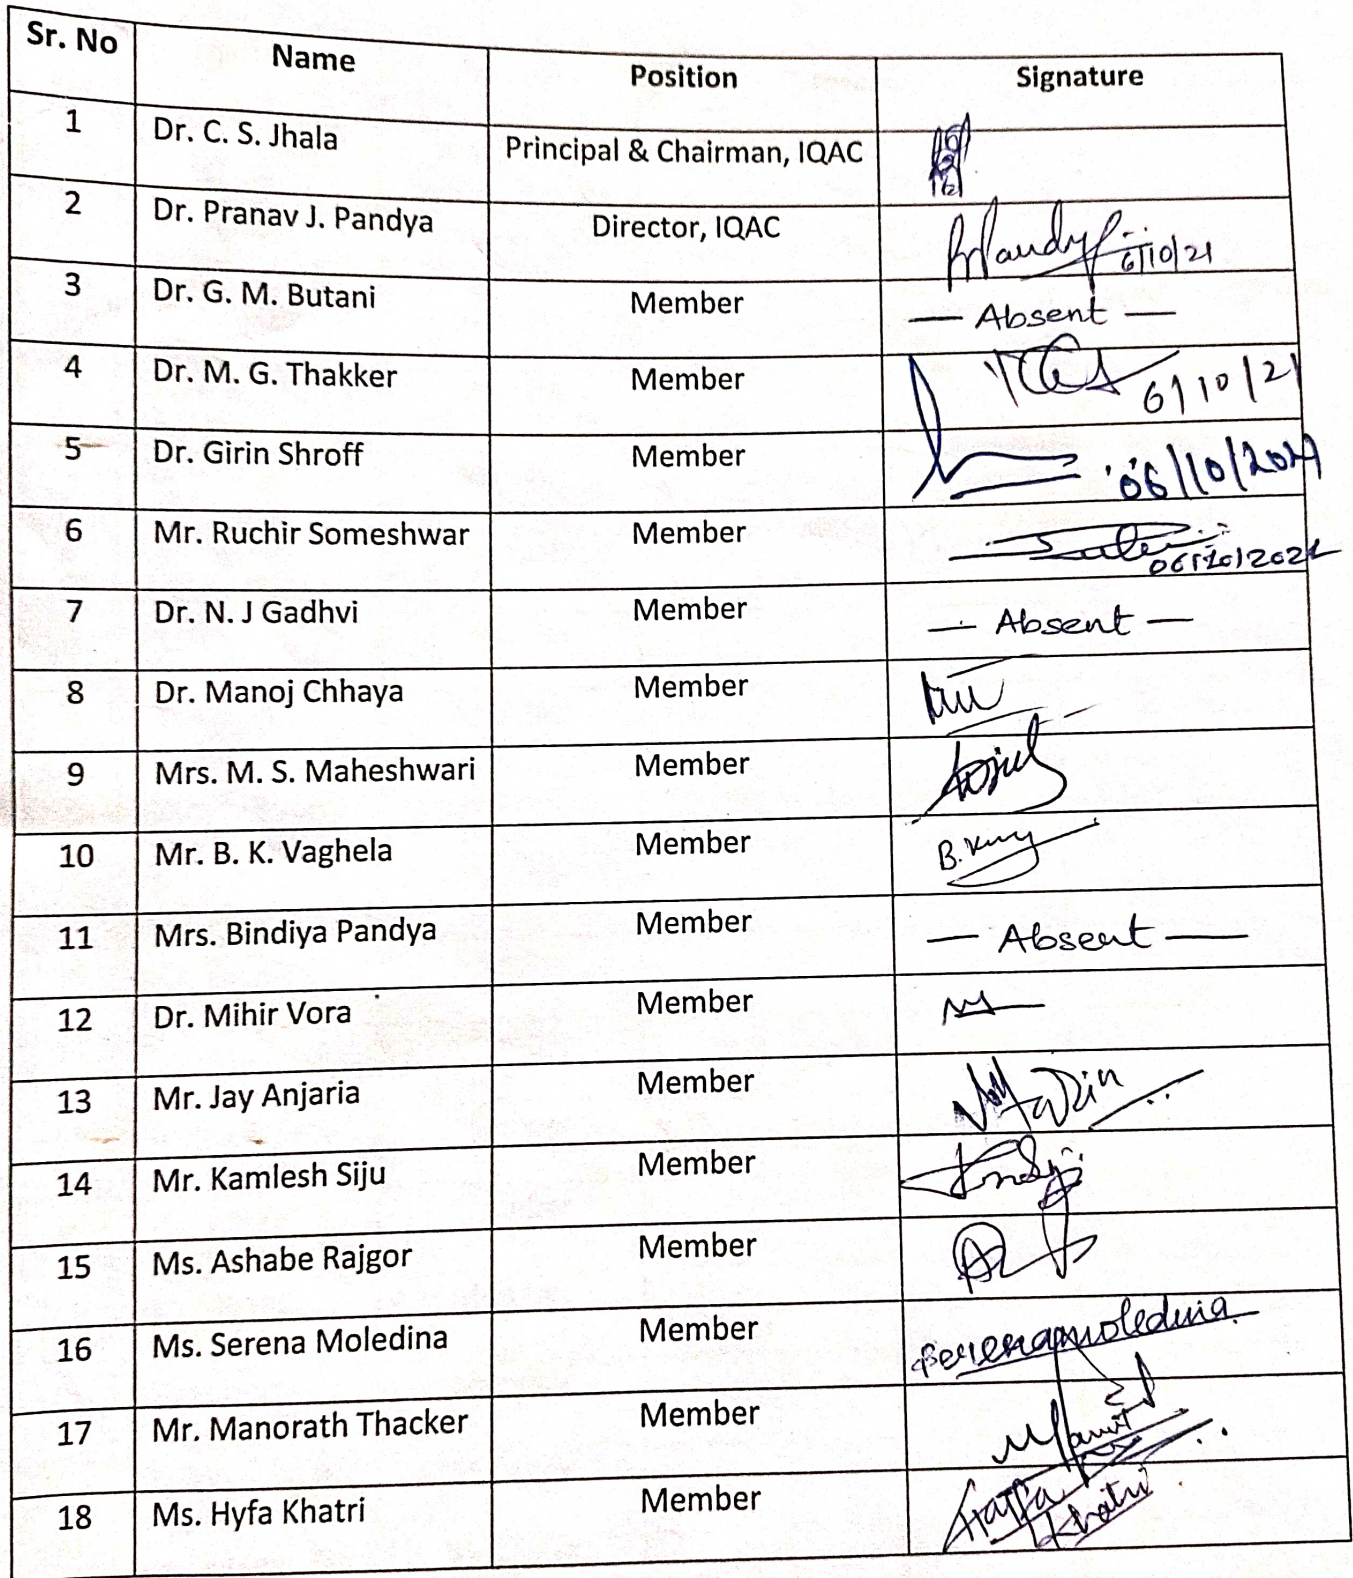 Sr. No Name Position Signature
1 Dr. C. S. Jhala Principal & Chairman, IQAC
2 Dr. Pranav J. Pandya Director, IQAC 6/10/21
3 Dr. G. M. Butani Member — Absent —
4 Dr. M. G. Thakker Member 6/10/21
5 Dr. Girin Shroff Member 06/10/2021
6 Mr. Ruchir Someshwar Member 06/10/2021
7 Dr. N. J Gadhvi Member — Absent —
8 Dr. Manoj Chhaya Member
9 Mrs. M. S. Maheshwari Member
10 Mr. B. K. Vaghela Member
11 Mrs. Bindiya Pandya Member — Absent —
12 Dr. Mihir Vora Member
13 Mr. Jay Anjaria Member
14 Mr. Kamlesh Siju Member
15 Ms. Ashabe Rajgor Member
16 Ms. Serena Moledina Member Serenamoledina
17 Mr. Manorath Thacker Member
18 Ms. Hyfa Khatri Member Khatri